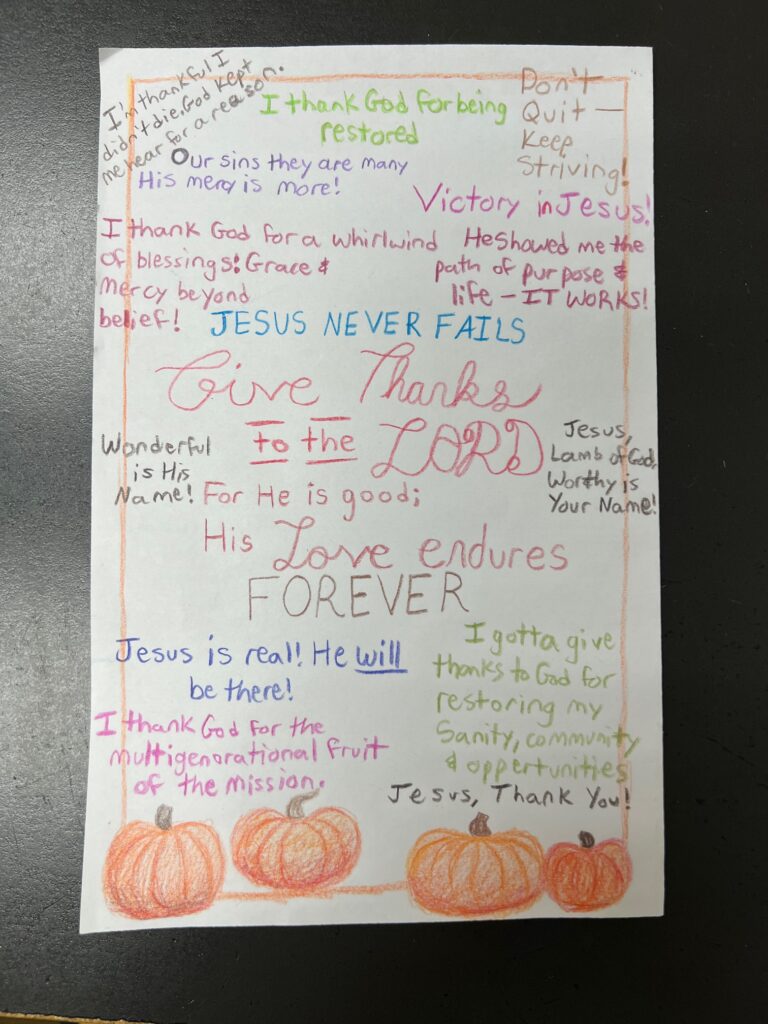 I'm thankful I
didn't die. God kept
me hear for a reason.
I thank God for being
restored
Don't
Quit —
Keep
Striving!
Our sins they are many
His mercy is more!
Victory in Jesus!
I thank God for a whirlwind
of blessings! Grace &
mercy beyond
belief!
He Showed me the
path of purpose &
life – IT WORKS!
JESUS NEVER FAILS
Give Thanks
to the LORD
Wonderful
is His
Name!
Jesus,
Lamb of God,
Worthy is
Your Name!
For He is good;
His Love endures
FOREVER
Jesus is real! He will
be there!
I gotta give
thanks to God for
restoring my
Sanity, community
& oppertunities
I thank God for the
multigenorational fruit
of the mission.
Jesus, Thank You!